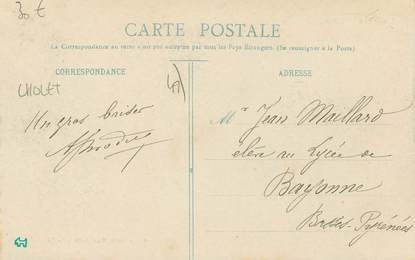 30 €
CARTE POSTALE
La Correspondance au recto n'est pas acceptée par tous les Pays Étrangers. (Se renseigner à la Poste)
CORRESPONDANCE
CHOLET
49
Un gros baiser
ADRESSE
Mr Jean Maillard
élève au Lycée de
Bayonne
Basses-Pyrénées